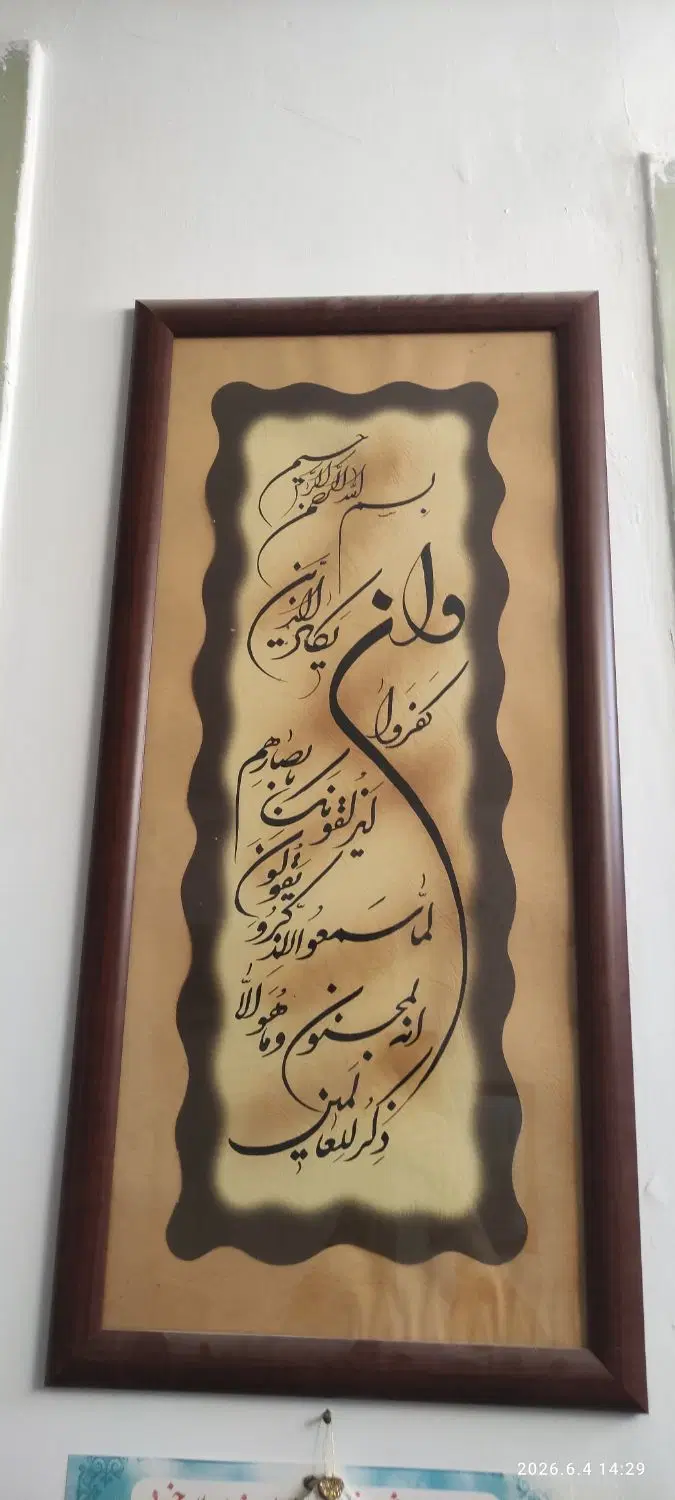 بسم الله الرحمن الرحیم
وان یکاد الذین
کفروا
لیزلقونک بابصارهم
لما سمعوا الذکر و یقولون
انه لمجنون وما هو الا
ذکر للعالمین
2026.6.4 14:29